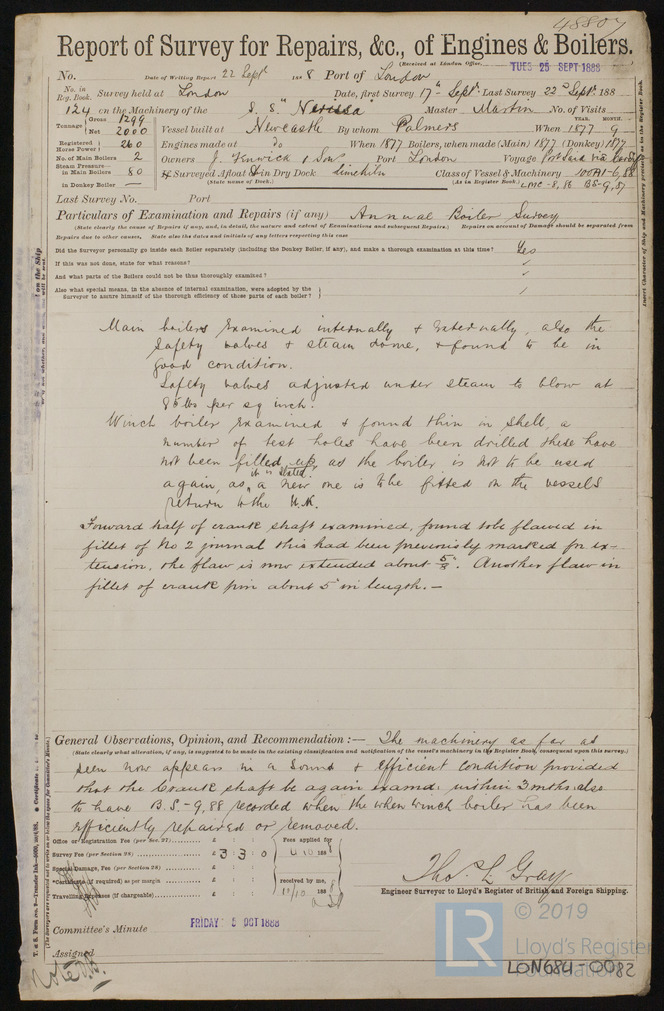 48807
Report of Survey for Repairs, &c., of Engines & Boilers.
(Received at London Office, TUES 25 SEPT 1888
No. Date of Writing Report 22 Sept 1888 Port of London
No. in Reg. Book. Survey held at London Date, first Survey 17th Sept. Last Survey 22d Sept. 188
124 on the Machinery of the S. S. "Nerissa" Master Martin No. of Visits
Tonnage Gross 1299 Net 2000 Vessel built at Newcastle By whom Palmers When 1877 YEAR. 9 MONTH.
Registered Horse Power 260 Engines made at do When 1877 Boilers, when made (Main) 1877 (Donkey) 1877
No. of Main Boilers 2 Owners J. Fenwick & Son Port London Voyage Port Said via
Steam Pressure in Main Boilers 80 If Surveyed Afloat or in Dry Dock Class of Vessel & Machinery 100A1-6,88
in Donkey Boiler — (State name of Dock.) (As in Register Book.) LMC-8,86 BS-9,87
Last Survey No. Port
Particulars of Examination and Repairs (if any) Annual Boiler Survey
(State clearly the cause of Repairs if any, and, in detail, the nature and extent of Examinations and subsequent Repairs.) Repairs on account of Damage should be separated from
Repairs due to other causes. State also the dates and initials of any letters respecting this case
Did the Surveyor personally go inside each Boiler separately (including the Donkey Boiler, if any), and make a thorough examination at this time? Yes
If this was not done, state for what reasons?
And what parts of the Boilers could not be thus thoroughly examined?
Also what special means, in the absence of internal examination, were adopted by the
Surveyor to assure himself of the thorough efficiency of those parts of each boiler?
Main boilers Examined internally & Externally, also the
Safety valves & steam dome, & found to be in
good condition.
Safety valves adjusted under steam to blow at
85 lbs per sq inch.
Winch boiler Examined & found thin in shell, a
number of test holes have been drilled these have
not been filled up, as the boiler is not to be used
again, as it is stated, a new one is to be fitted on the vessels
return to the U.K.
Forward half of crank shaft examined, found to be flawed in
fillet of No 2 journal this had been previously marked for ex-
tension, the flaw is now extended about 5/8. Another flaw in
fillet of crank pin about 5" in length. —
General Observations, Opinion, and Recommendation :— The machinery as far as
(State clearly what alteration, if any, is suggested to be made in the existing classification and notification of the vessel's machinery in the Register Book, consequent upon this survey.)
seen now appears in a sound & efficient condition provided
that the Crank shaft be again examd. within 3 mths also
to have B.S.-9,88 recorded when the when winch boiler has been
efficiently repaired or removed.
Office or Registration Fee (per Sec. 27) £ Fees applied for
Survey Fee (per Section 28) £ 3 3 0 4.10 188
Special Damage, Fee (per Section 28) £
Certificate (if required) as per margin £ received by me,
Travelling Expenses (if chargeable) £ 11/10 188
Thos. L. Gray
Engineer Surveyor to Lloyd's Register of British and Foreign Shipping.
Committee's Minute FRIDAY 5 OCT 1888
Assigned
LR © 2019
Lloyd's Register
Foundation
LON684-0082
Insert Character of Ship and Machinery precisely as in the Register Book.